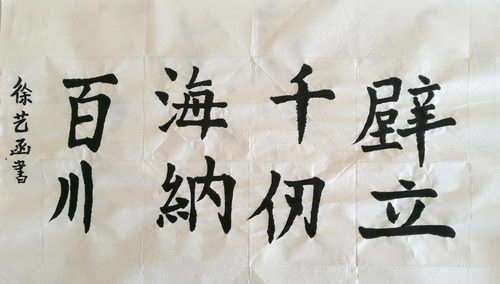 壁立
千仞
海納
百川
徐艺函書